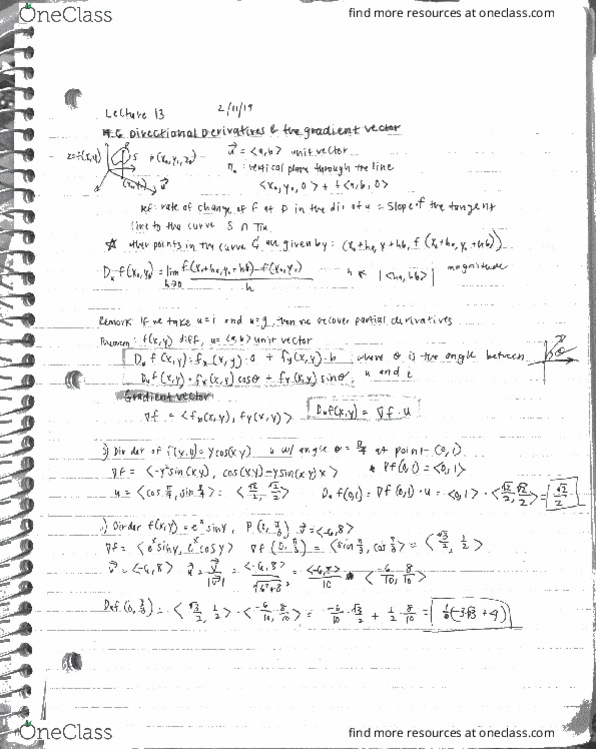 OneClass
find more resources at oneclass.com
Lecture 13 2/11/19
14.6 Directional Derivatives & the gradient vector
z=f(x,y) S P(x₀,y₀,z₀) u⃗ = <a,b> unit vector
: vertical plane through the line
<x₀,y₀,0> + t<a,b,0>
rate of change of f at P in the dir of u = slope of the tangent
line to the curve S ∩
other points in the curve C are given by: (x₀+ha, y₀+hb, f(x₀+ha, y₀+hb))
Dᵤf(x₀,y₀) = lim h→0 f(x₀+ha, y₀+hb) - f(x₀,y₀) / h |<ha,hb>| magnitude
Remark If we take u=i and u=j, then we recover partial derivatives
Theorem: f(x,y) diff, u=<a,b> unit vector
Dᵤf(x,y) = fₓ(x,y)·a + fᵧ(x,y)·b where θ is the angle between
Dᵤf(x,y) = fₓ(x,y)cosθ + fᵧ(x,y)sinθ u and i
Gradient vector
∇f = <fₓ(x,y), fᵧ(x,y)> Dᵤf(x,y) = ∇f·u
Dir der of f(x,y) = ycos(xy) w/ angle θ = π/4 at point (0,1)
∇f = <-y²sin(xy), cos(xy)-ysin(xy)x> ∇f(0,1) = <0,1>
u = <cos π/4, sin π/4> = <√2/2, √2/2> Dᵤf(0,1) = ∇f(0,1)·u = <0,1>·<√2/2, √2/2> = √2/2
Dir der f(x,y) = eˣsiny, P(0, π/3), v⃗ = <-6,8>
∇f = <eˣsiny, eˣcosy> ∇f(0, π/3) = <sin π/3, cos π/3> = <√3/2, 1/2>
v⃗ = <-6,8> u⃗ = v⃗/|v⃗| = <-6,8>/√(6²+8²) = <-6,8>/10 = <-6/10, 8/10>
Dᵤf(0, π/3) = <√3/2, 1/2>·<-6/10, 8/10> = -6/10·√3/2 + 1/2·8/10 = (-3√3+4)
OneClass
find more resources at oneclass.com